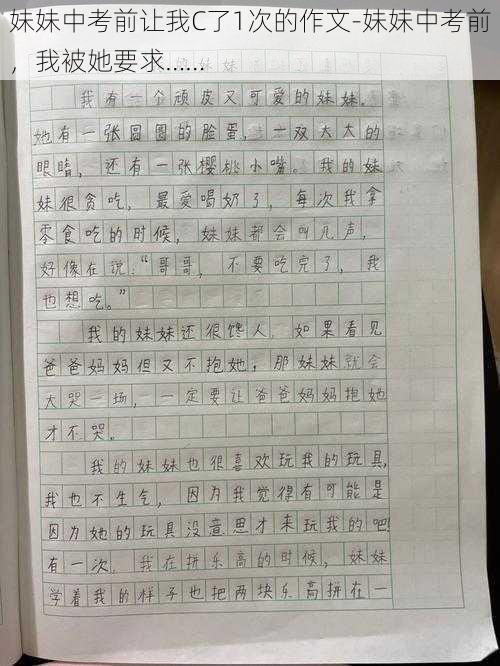 妹妹中考前让我C了1次的作文-妹妹中考前
，我被她要求......
我有一个顽皮又可爱的妹妹.
她有一张圆圆的脸蛋,一双大大的
眼睛，还有一张樱桃小嘴。我的妹
妹很贪吃，最爱喝奶了，每次我拿
零食吃的时候，妹妹都会叫几声，
好像在说:“哥哥，不要吃完了，我
也想吃。”
我的妹妹还很馋人，如果看见
爸爸妈妈但又不抱她，那妹妹就会
大哭一场，一定要让爸爸妈妈抱她
才不哭。
我的妹妹也很喜欢玩我的玩具,
我也不生气，因为我觉得有可能是
因为她的玩具没意思才来玩我的吧!
有一次，我在拼乐高的时候，妹妹
学着我的样子也把两块乐高拼在一